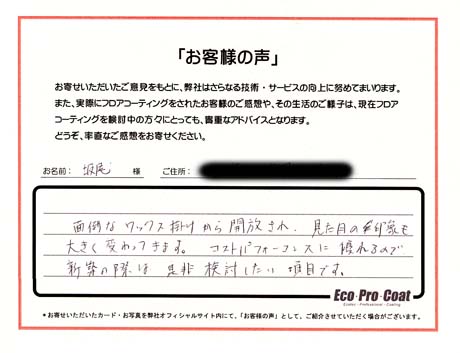 「お客様の声」
お寄せいただいたご意見をもとに、弊社はさらなる技術・サービスの向上に努めてまいります。
また、実際にフロアコーティングをされたお客様のご感想や、その生活のご様子は、現在フロア
コーティングを検討中の方々にとっても、貴重なアドバイスとなります。
どうぞ、率直なご感想をお寄せください。
お名前： 坂尾 様 ご住所：
面倒なワックス掛けから開放され、見た目の印象も
大きく変わってきます。コストパフォーマンスに優れるので
新築の際は是非検討したい項目です。
Eco・Pro・Coat
＊お寄せいただいたカード・お写真を弊社オフィシャルサイト内にて、「お客様の声」として、ご紹介させていただく場合がございます。